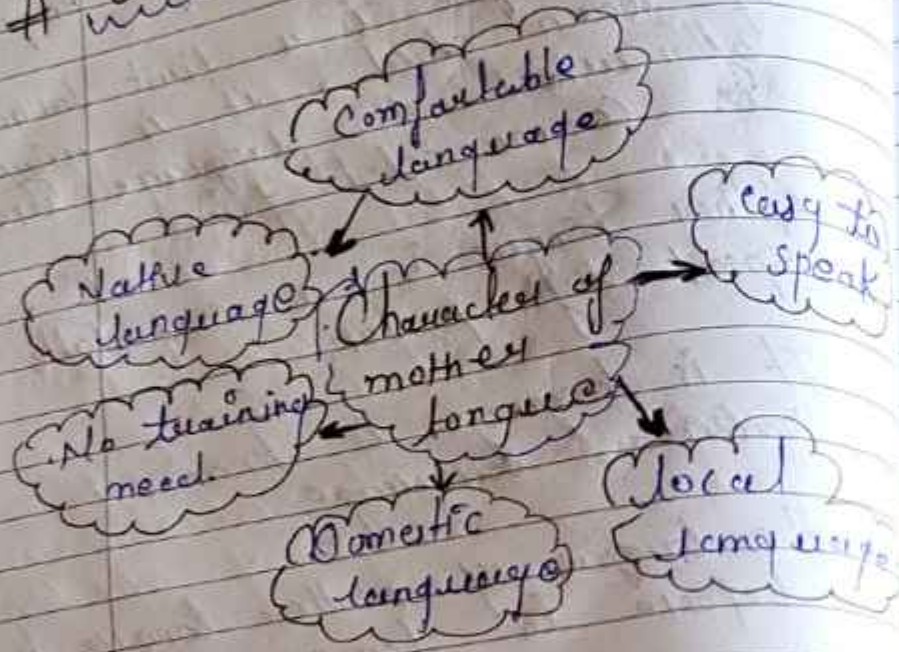 #
Comfortable
language
Easy to
speak
Native
language
Character of
mother
tongue
No training
need.
Local
language
Domestic
language